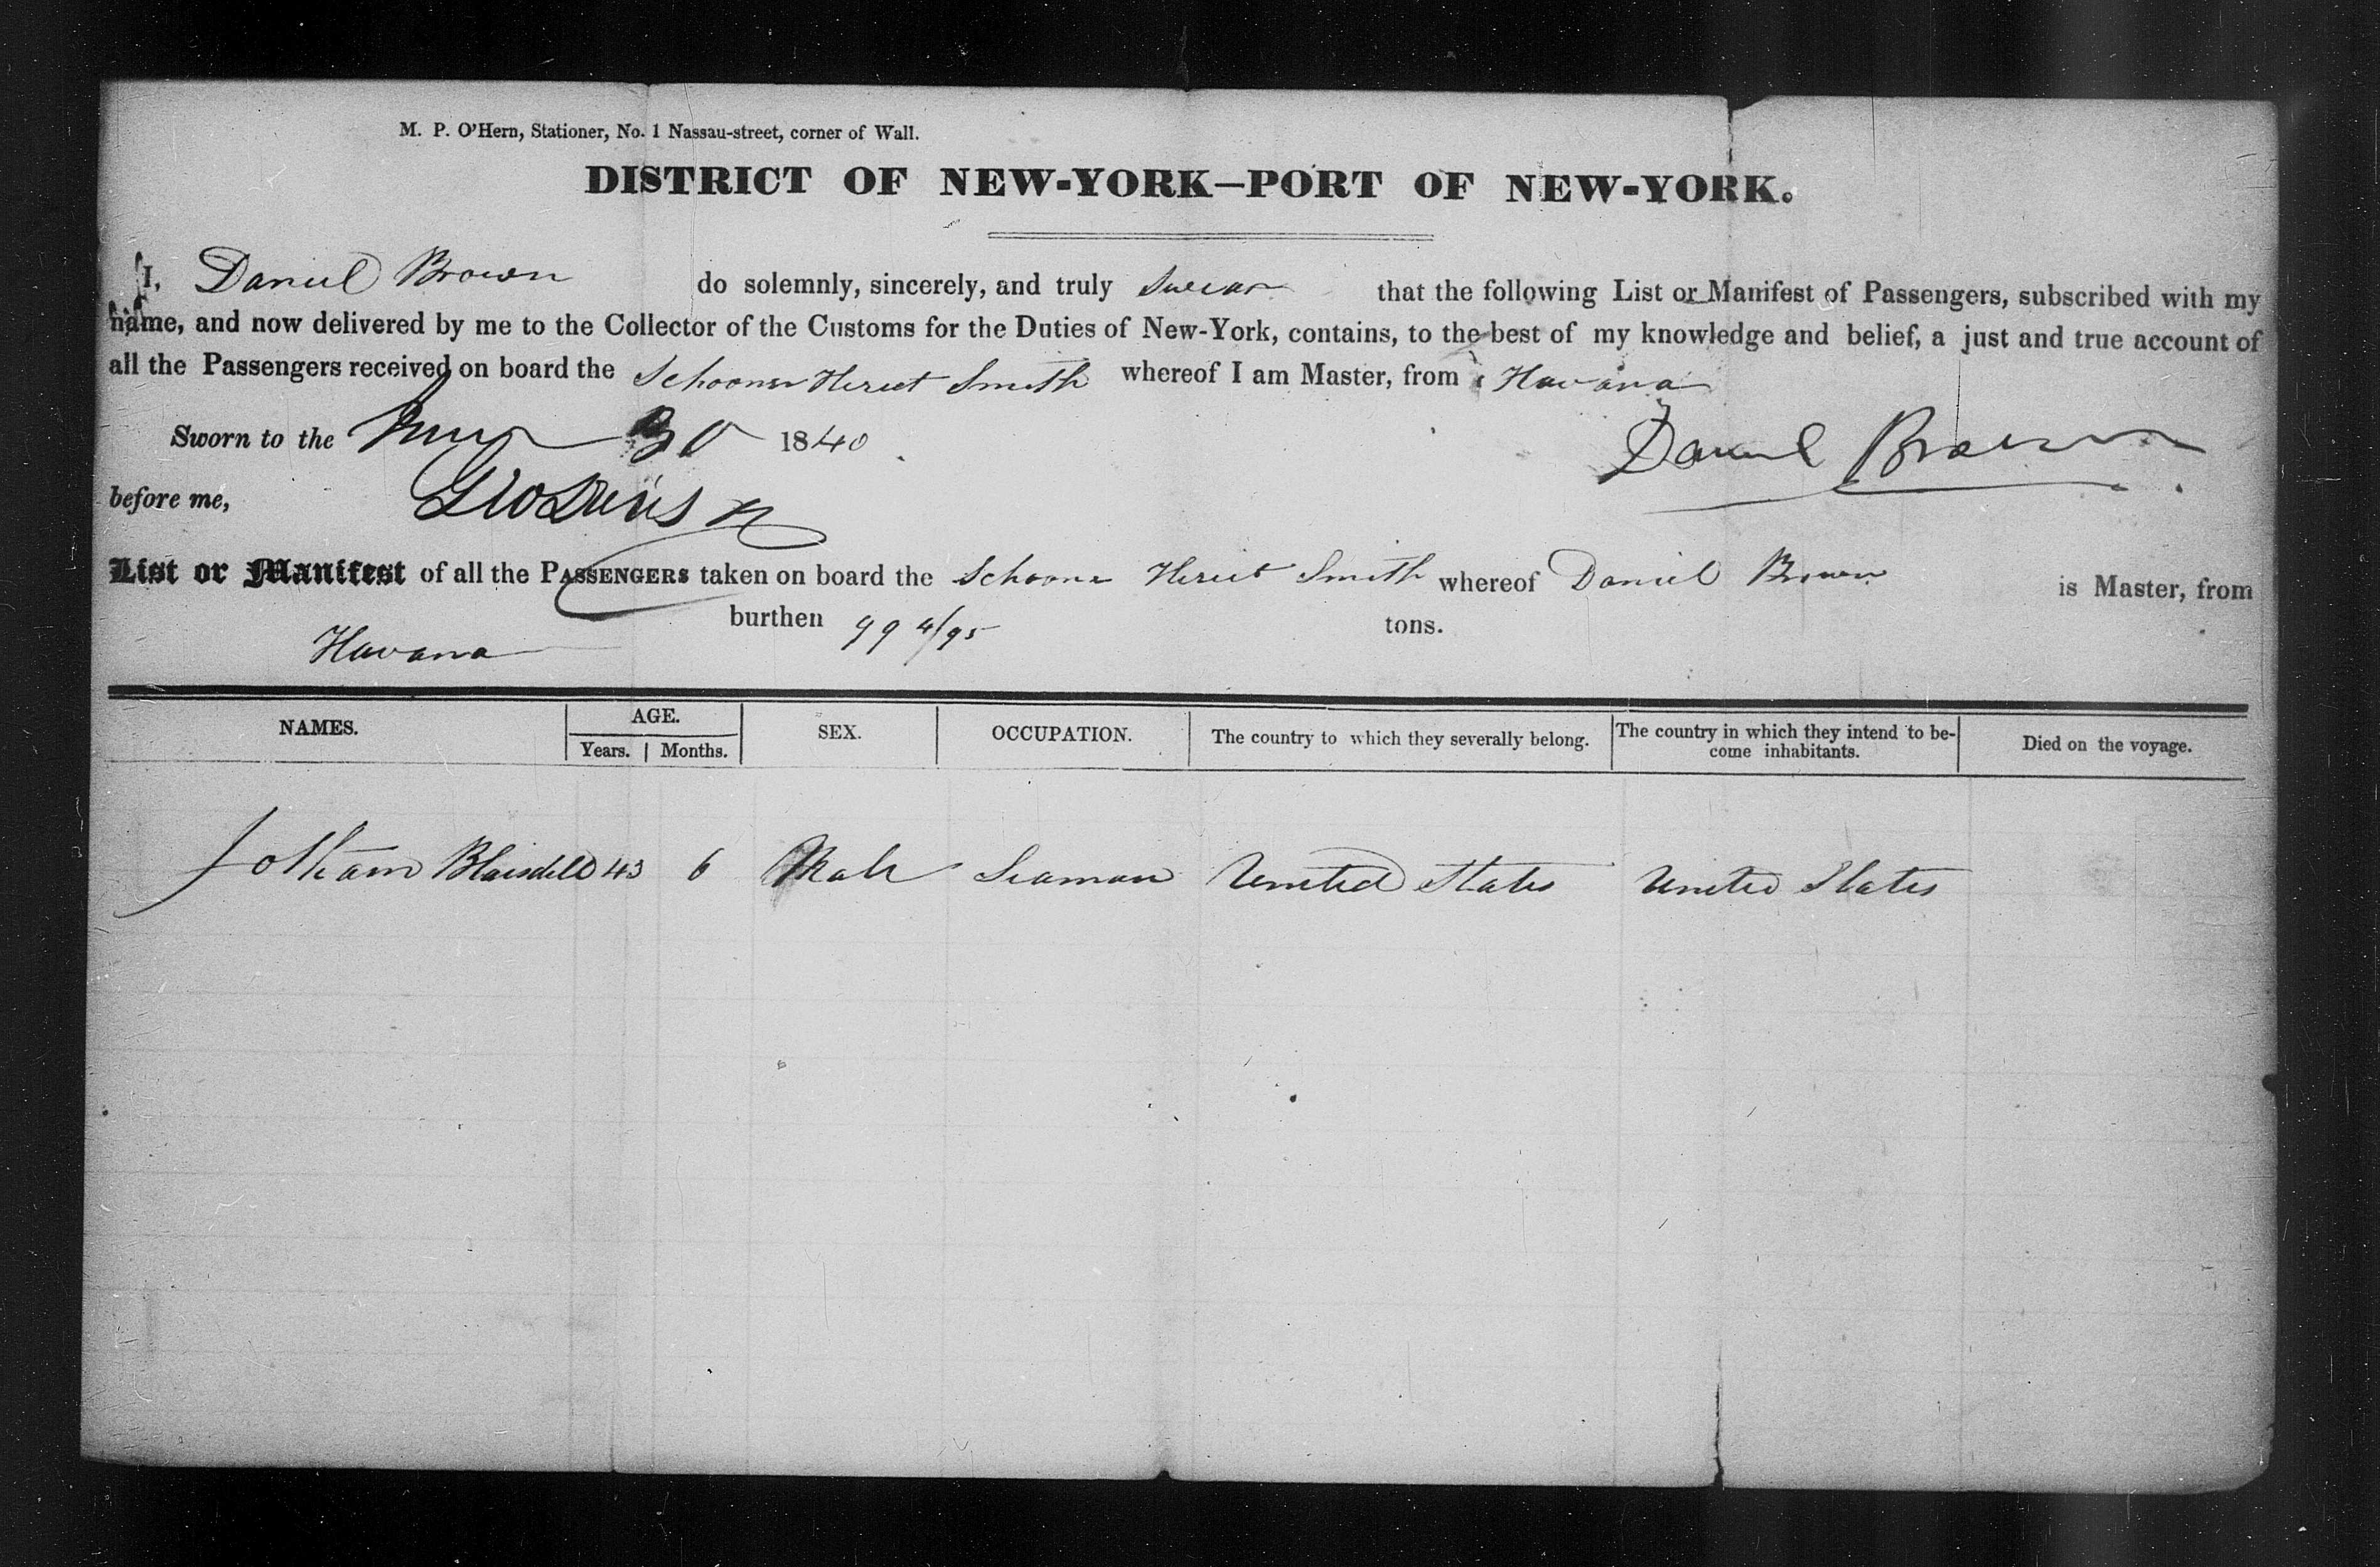 M. P. O'Hern, Stationer, No. 1 Nassau-street, corner of Wall.
DISTRICT OF NEW-YORK—PORT OF NEW-YORK.
I, Daniel Brown do solemnly, sincerely, and truly Swear that the following List or Manifest of Passengers, subscribed with my
name, and now delivered by me to the Collector of the Customs for the Duties of New-York, contains, to the best of my knowledge and belief, a just and true account of
all the Passengers received on board the Schooner Smith whereof I am Master, from Havana
Sworn to the 30 1840
Daniel Brown
before me,
List or Manifest of all the PASSENGERS taken on board the Schooner Smith whereof Daniel Brown is Master, from
Havana burthen 99 4/95 tons.
NAMES. AGE. SEX. OCCUPATION. The country to which they severally belong. The country in which they intend to be- Died on the voyage.
Years. Months. come inhabitants.
Jotham Blaisdell 43 6 Male Seaman United States United States